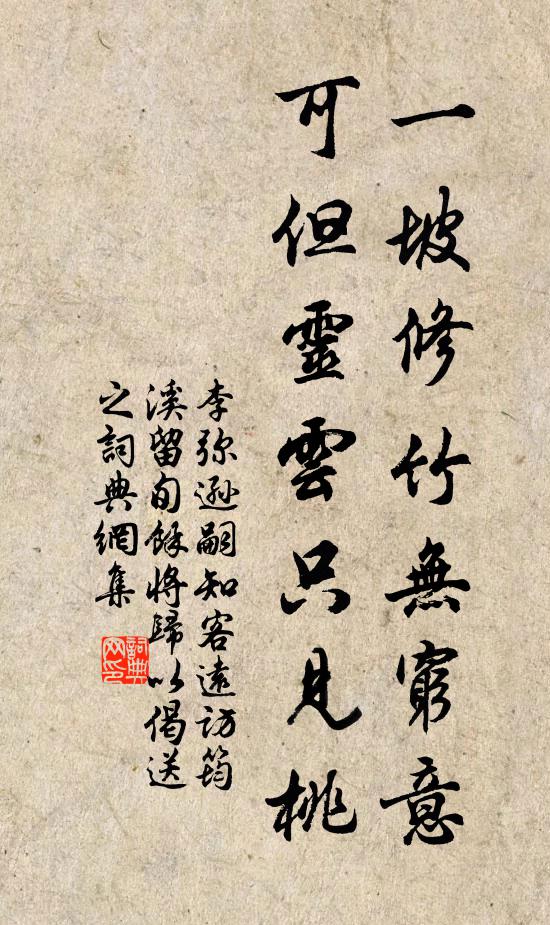 一坡修竹無窮意
可但靈雲只見桃
李弥遜嗣知客遠訪筠
溪留旬餘將歸以偈送
之詞典網集
詞典
网印